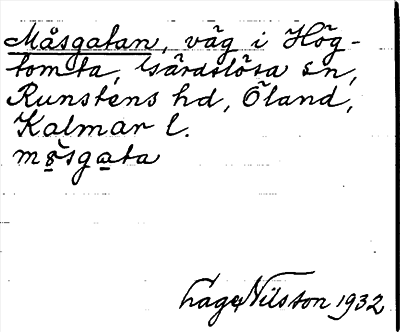 Måsgatan, väg i Hög-
tomta, Gärdslösa sn,
Runstens hd, Öland,
Kalmar l.
måsgata
Lage Nilsson 1932